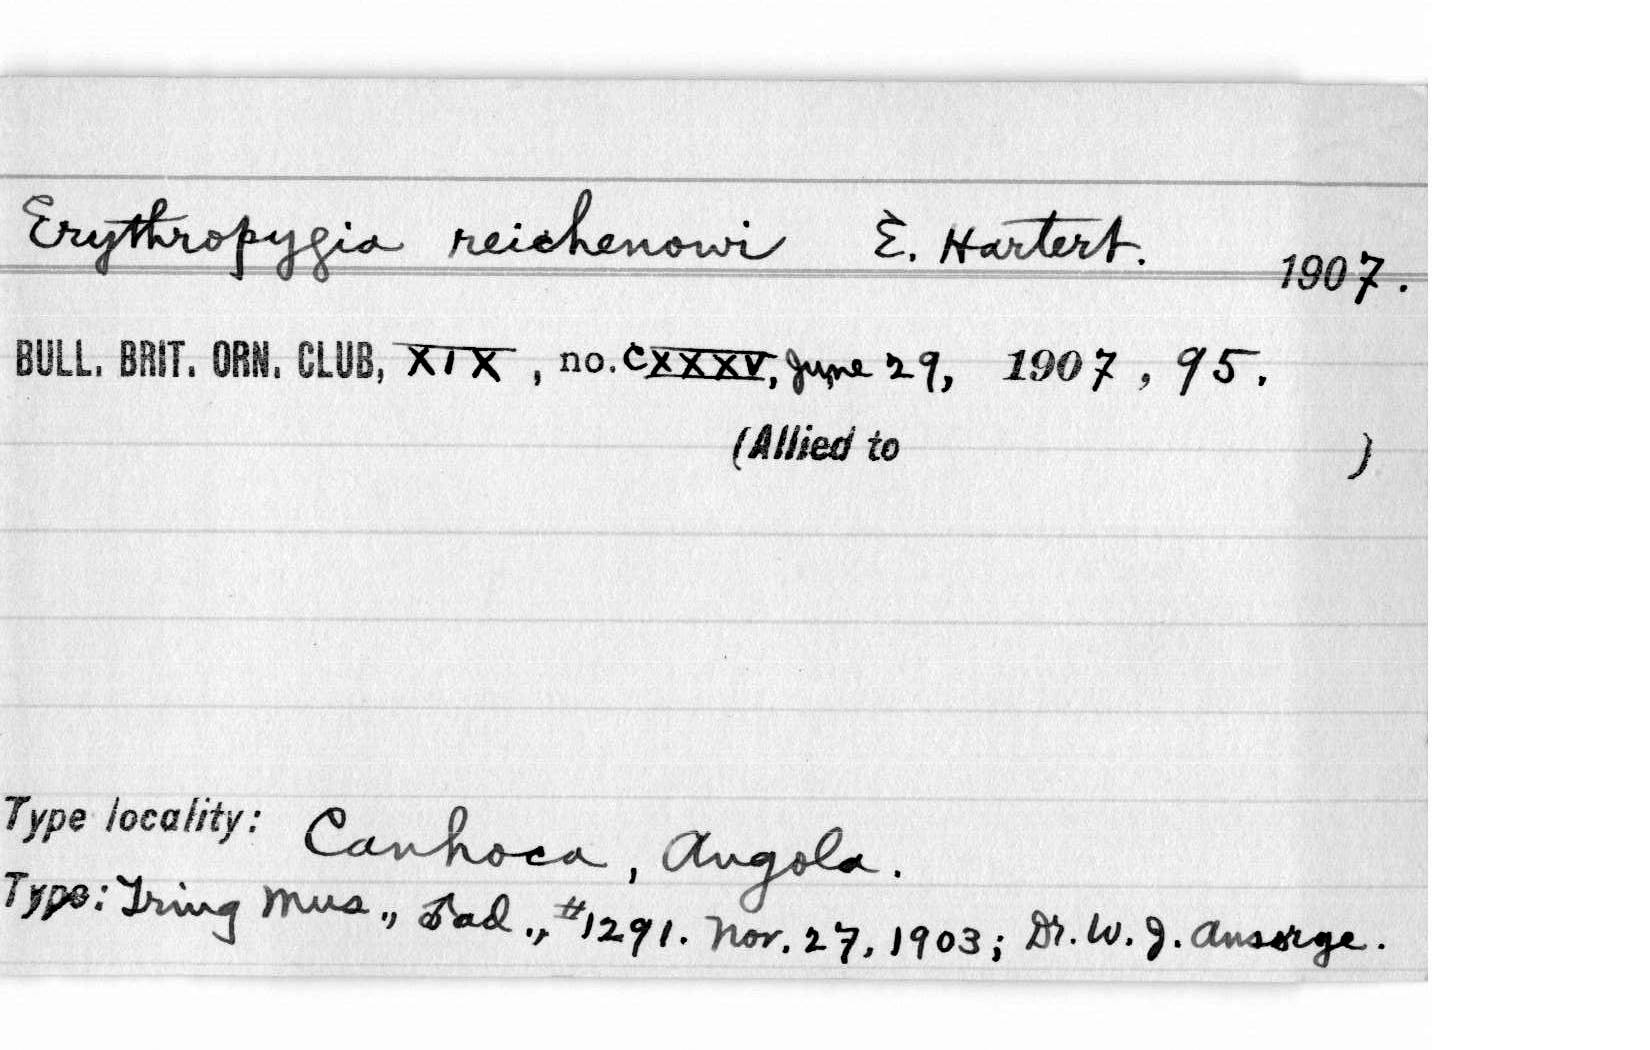 Erythropygia reichenowi E. Hartert. 1907.
BULL. BRIT. ORN. CLUB, XIX, no. CXXXV, June 29, 1907, 95.
(Allied to )
Type locality: Canhoca, Angola.
Type: Tring Mus., ♂ad., #1291. Nov. 27, 1903; Dr. W. J. Ansorge.